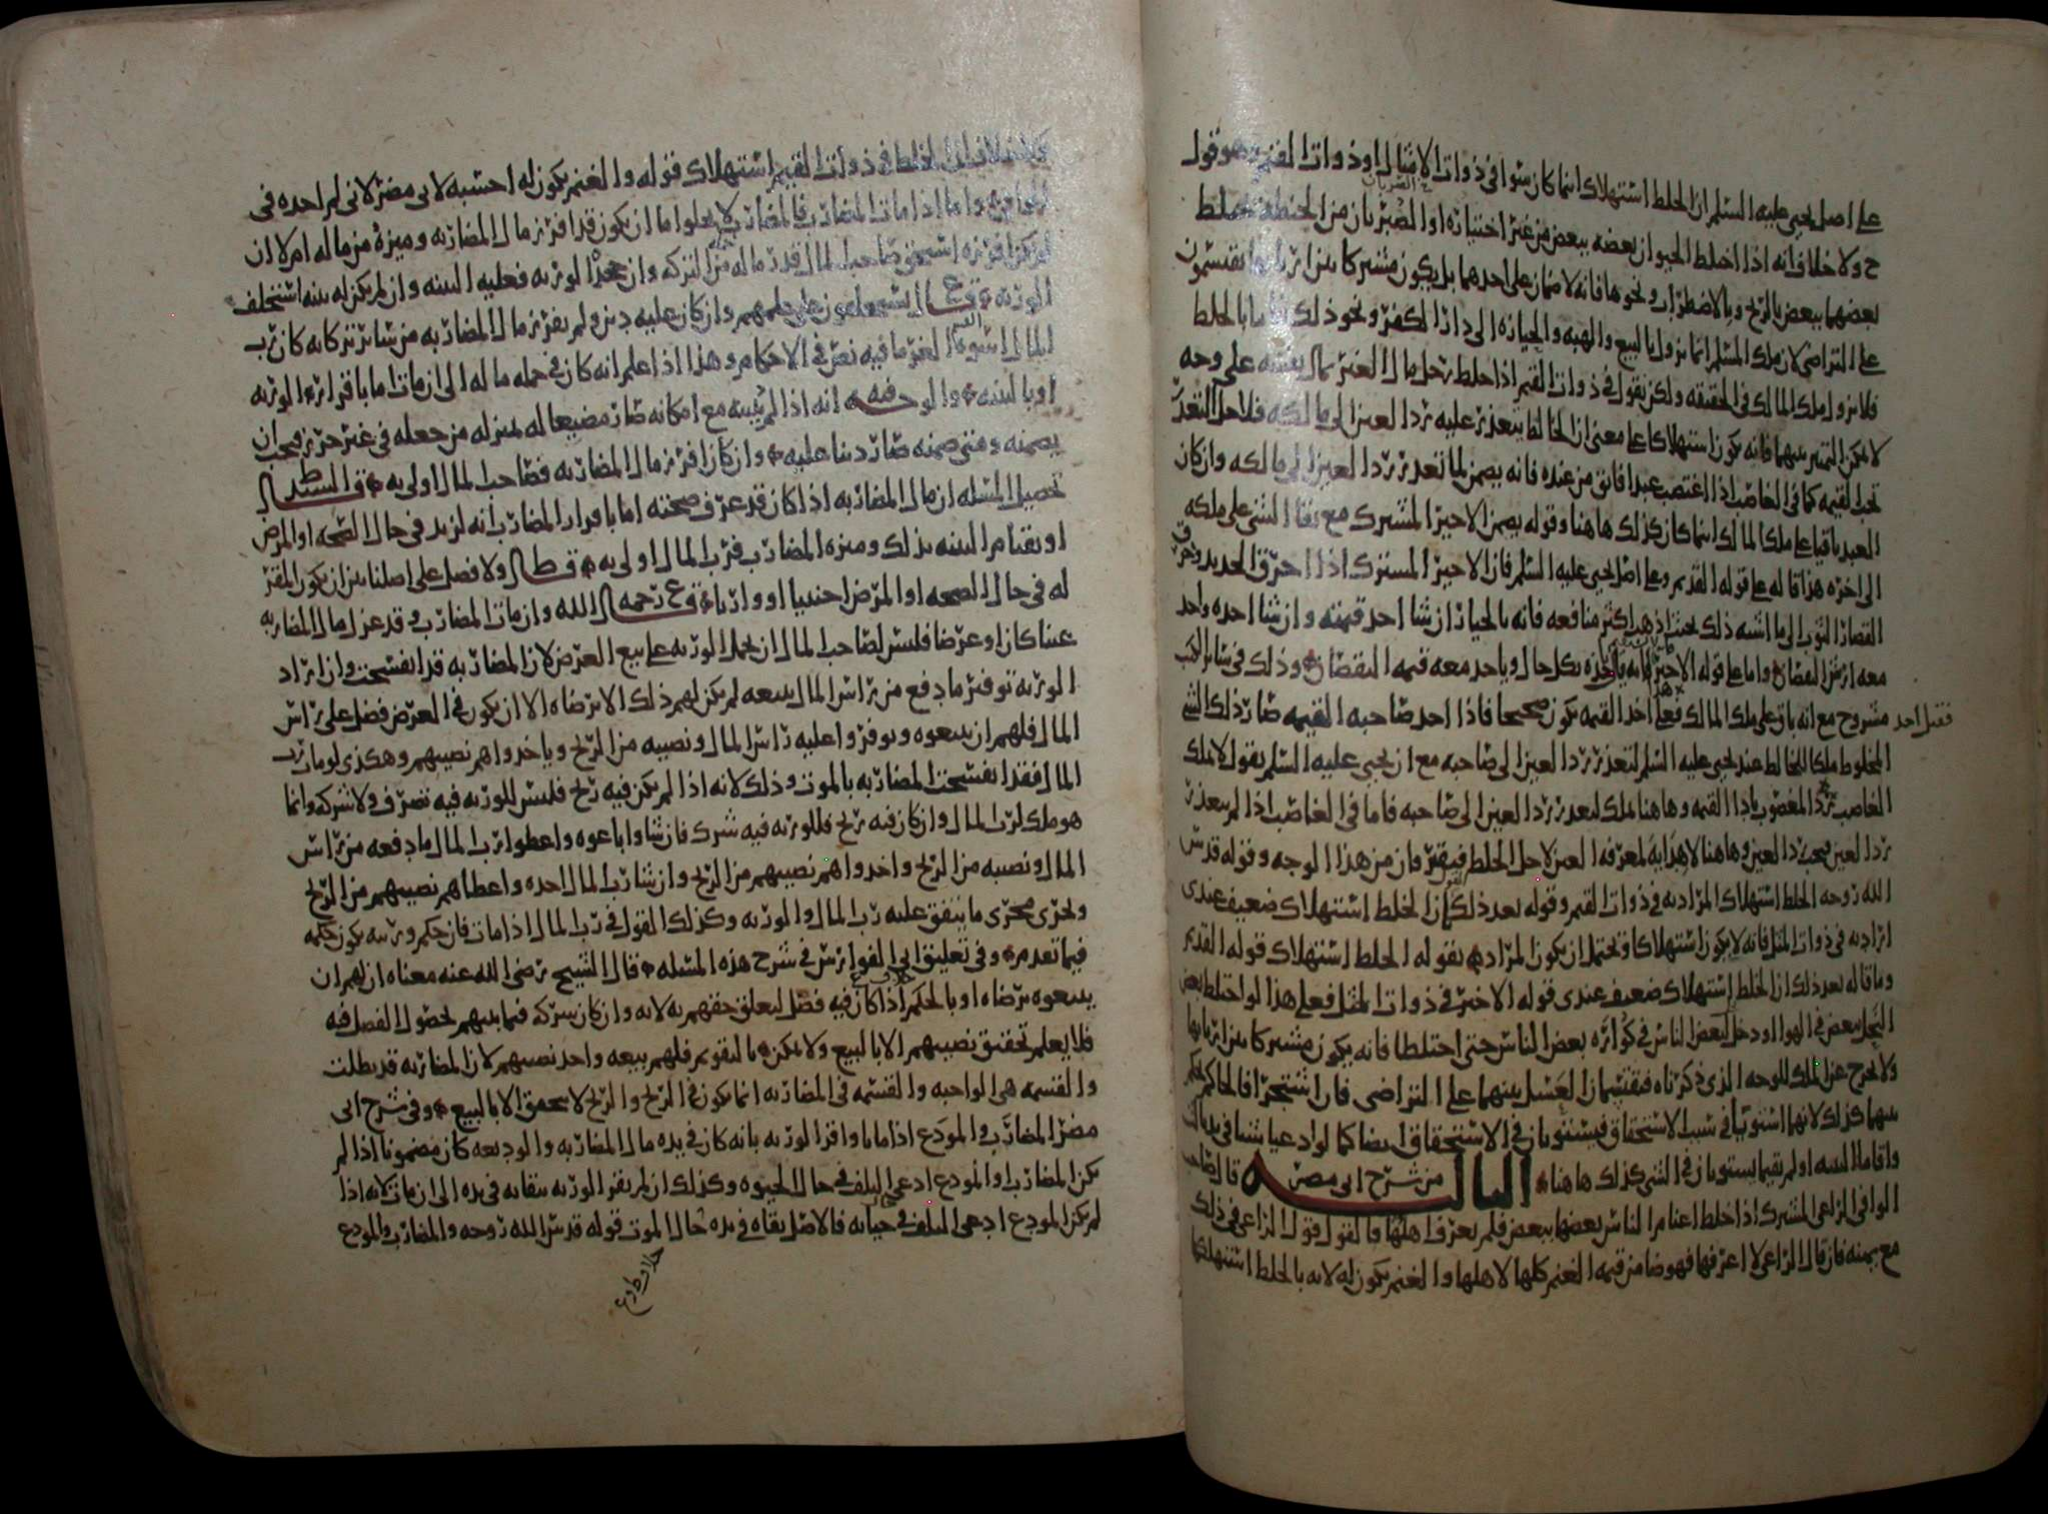 على اصل يحيى عليه السلم ان الخلط استهلاك انما كان سوا في ذوات الامثال او ذوات القيم وهو قول
ح ولا خلاف انه اذا اختلط الحيوان بعضه ببعض من غير اختياره او الضبرتان من الحنطة
بعضهما ببعض بالريح وبالاضطراب ونحوها فانه لا ضمان على احدهما بل يكون مشتركا بين اربابها يقتسمون
على التراضي لان ملك المسلم انما يزول بالبيع والهبه والحيازه الى دار الكفر ونحو ذلك فاما بالخلط
فلا يزول ملك المالك في الحقيقه ولكن نقول في ذوات القيم اذا خلط رجل مال الغير بمال نفسه على وجه
لا يمكن التمييز بينهما فانه يكون استهلاكا على معنى ان الخالط يتعذر عليه رد العين الى مالكه فلاجل التعذر
تجب القيمه كما في الغاصب اذا اغتصب عبدا فابق من عنده فانه يضمن لما تعذر رد العين الى مالكه وان كان
العبد باقيا على ملك المالك انما كان كذلك هاهنا وقوله يضمن الاجير المشترك مع بقا الشي على ملكه
الى اخره هذا قاله على قوله القديم وعلى اصل يحيى عليه السلم فان الاجير المشترك اذا احرق الحديد وخرق
القصار الثوب الى ما اشبه ذلك بحيث اذهب اكثر منافعه فانه بالخيار ان شا اخذ قيمته وان شا اخذه واخذ
معه ارش النقصان واما على قوله الاخير فانه ياخذه بكل حال وياخذ معه قيمه النقصان وذلك في سائر الكتب
مشروح مع انه باق على ملك المالك فعلى هذا اخذ القيمه يكون صحيحا فاذا اخذ صاحبه القيمه صار ذلك الشي
فقبل اخذ
المخلوط ملكا للخالط عند يحيى عليه السلم لتعذر رد العين الى صاحبه مع ان يحيى عليه السلم يقول لا يملك
الغاصب المغصوب باداء القيمه وهاهنا يملك لتعذر رد العين الى صاحبه فاما في الغاصب اذا لم يتعذر
رد العين فيجب رد العين وهاهنا لا هداية لمعرفه العين لاجل الخلط فيفترقان من هذا الوجه وقوله قدس
الله روحه الخلط استهلاك المراد به في ذوات القيم وقوله بعد ذلك ان الخلط استهلاك ضعيف عندي
اراد به في ذوات المثل فانه لا يكون استهلاكا ويحتمل ان يكون المراد بقوله الخلط استهلاك قوله القديم
وما قاله بعد ذلك ان الخلط استهلاك ضعيف عندي قوله الاخير في ذوات المثل فعلى هذا لو اختلط بعض
النحل ببعض في الهوا او دخل لبعض الناس في كواره بعض الناس حتى اختلطا فانه يكون مشتركا بين اربابها
ولا يخرج عن الملك للوجه الذي ذكرناه فيقتسمان العسل بينهما على التراضي فان اشتجرا فالحاكم يحكم
بينهما كذلك لانهما استويا في سبب الاستحقاق فيستويان في الاستحقاق ايضا كما لو ادعيا شيئا في يد ثالث
واقاما البينه او لم يقيما يستويان في الشي كذلك هاهنا الثالثه من شرح ابي مضر قال صاحب
الوافي الراعي المشترك اذا خلط اغنام الناس بعضها ببعض فلم يعرف اهلها فالقول قول الراعي في ذلك
مع يمينه فان قال الراعي لا اعرفها فهو ضامن قيمه الغنم كلها لاهلها والغنم يكون له لانه بالخلط استهلكها
الخلط في ذوات القيم استهلاك قوله والغنم يكون له احسبه لابي مضر لاني لم اجده في
الوافي واما اذا مات المضارب فالمضارب لا يخلوا اما ان يكون قد افرز مال المضاربه وميزه من ماله ام لا ان
افرزه استحق صاحب المال قدر ماله من التركه وان جحد الورثه فعليه البينه وان لم يكن له بينه استحلف
الورثه على علمهم وان كان عليه دين ولم يفرز مال المضاربه من سائر تركاته كان رب
المال اسوه الغرما فيه نص في الاحكام وهذا اذا علم انه كان في جمله ماله الى ان مات اما باقرار الورثه
او بالبينه والوجه فيه انه اذا لم يبينه مع امكانه صار مضيعا له بمنزله من جعله في غير حرز فيجب ان
يضمنه ومتى ضمنه صار دينا عليه وان كان افرز مال المضاربه فصاحب المال اولى به
تحصيل المسله ان مال المضاربه اذا كان قد عرف صحته اما باقرار المضارب انه لزيد في حال الصحه او المرض
او بقيام البينه بذلك وميزه المضارب فرب المال اولى به قال ط ولا فصل على اصلنا بين ان يكون المقر
له في حال الصحه او المرض اجنبيا او وارثا قال ع رحمه الله وان مات المضارب وقد عزل مال المضاربه
عينا كان او عرضا فليس لصاحب المال ان يحمل الورثه على بيع العرض لان المضاربه قد انفسخت وان اراد
الورثه توفير ما دفع من راس المال ببيعه لم يكن لهم ذلك الا برضاه الا ان يكون في العرض فضل على راس
المال فلهم ان يبيعوه ويوفروا عليه راس المال ونصيبه من الربح وياخذوا هم نصيبهم وهكذى لو مات رب
المال فقد انفسخت المضاربه بالموت وذلك لانه اذا لم يكن فيه ربح فليس للورثه فيه تصرف ولا شركه وانما
هو ملك لرب المال وان كان فيه ربح فللورثه فيه شرك فان شاوا باعوه واعطوا رب المال ما دفعه من راس
المال ونصيبه من الربح واخذوا هم نصيبهم من الربح وان شا رب المال اخذه واعطاهم نصيبهم من الربح
ويجرى مجرى ما يتفق عليه رب المال والورثه وكذلك القول في رب المال اذا مات فان حكم ورثته يكون حكمه
فيما تقدم وفي تعليق ابي الفوارس في شرح هذه المسله قال الشيخ رضى الله عنه معناه ان لهم ان
يبيعوه برضاه او بالحكم اذا كان فيه فضل لتعلق حقهم به لانه وان كان شركه فيما بينهم لحصول الفضل فيه
فلا يعلم تحقيق نصيبهم الا بالبيع ولا يمكن بالتقويم فلهم بيعه واخذ نصيبهم لان المضاربه قد بطلت
والقسمه هي الواجبه والقسمه في المضاربه انما يكون في الربح والربح لا يتحقق الا بالبيع وفي شرح ابي
مضر المضارب والمودع اذا ماتا واقر الورثه بانه كان في يده مال المضاربه والوديعه كان مضمونا اذا لم
يكن المضارب او المودع ادعى التلف في حال الحيوه وكذلك ان لم يقر الورثه ببقائه في يده الى ان مات لانه اذا
لم يكن المودع ادعى التلف في حياته فالاصل بقاه في يده حال الموت قوله قدس الله روحه والمضارب والمودع